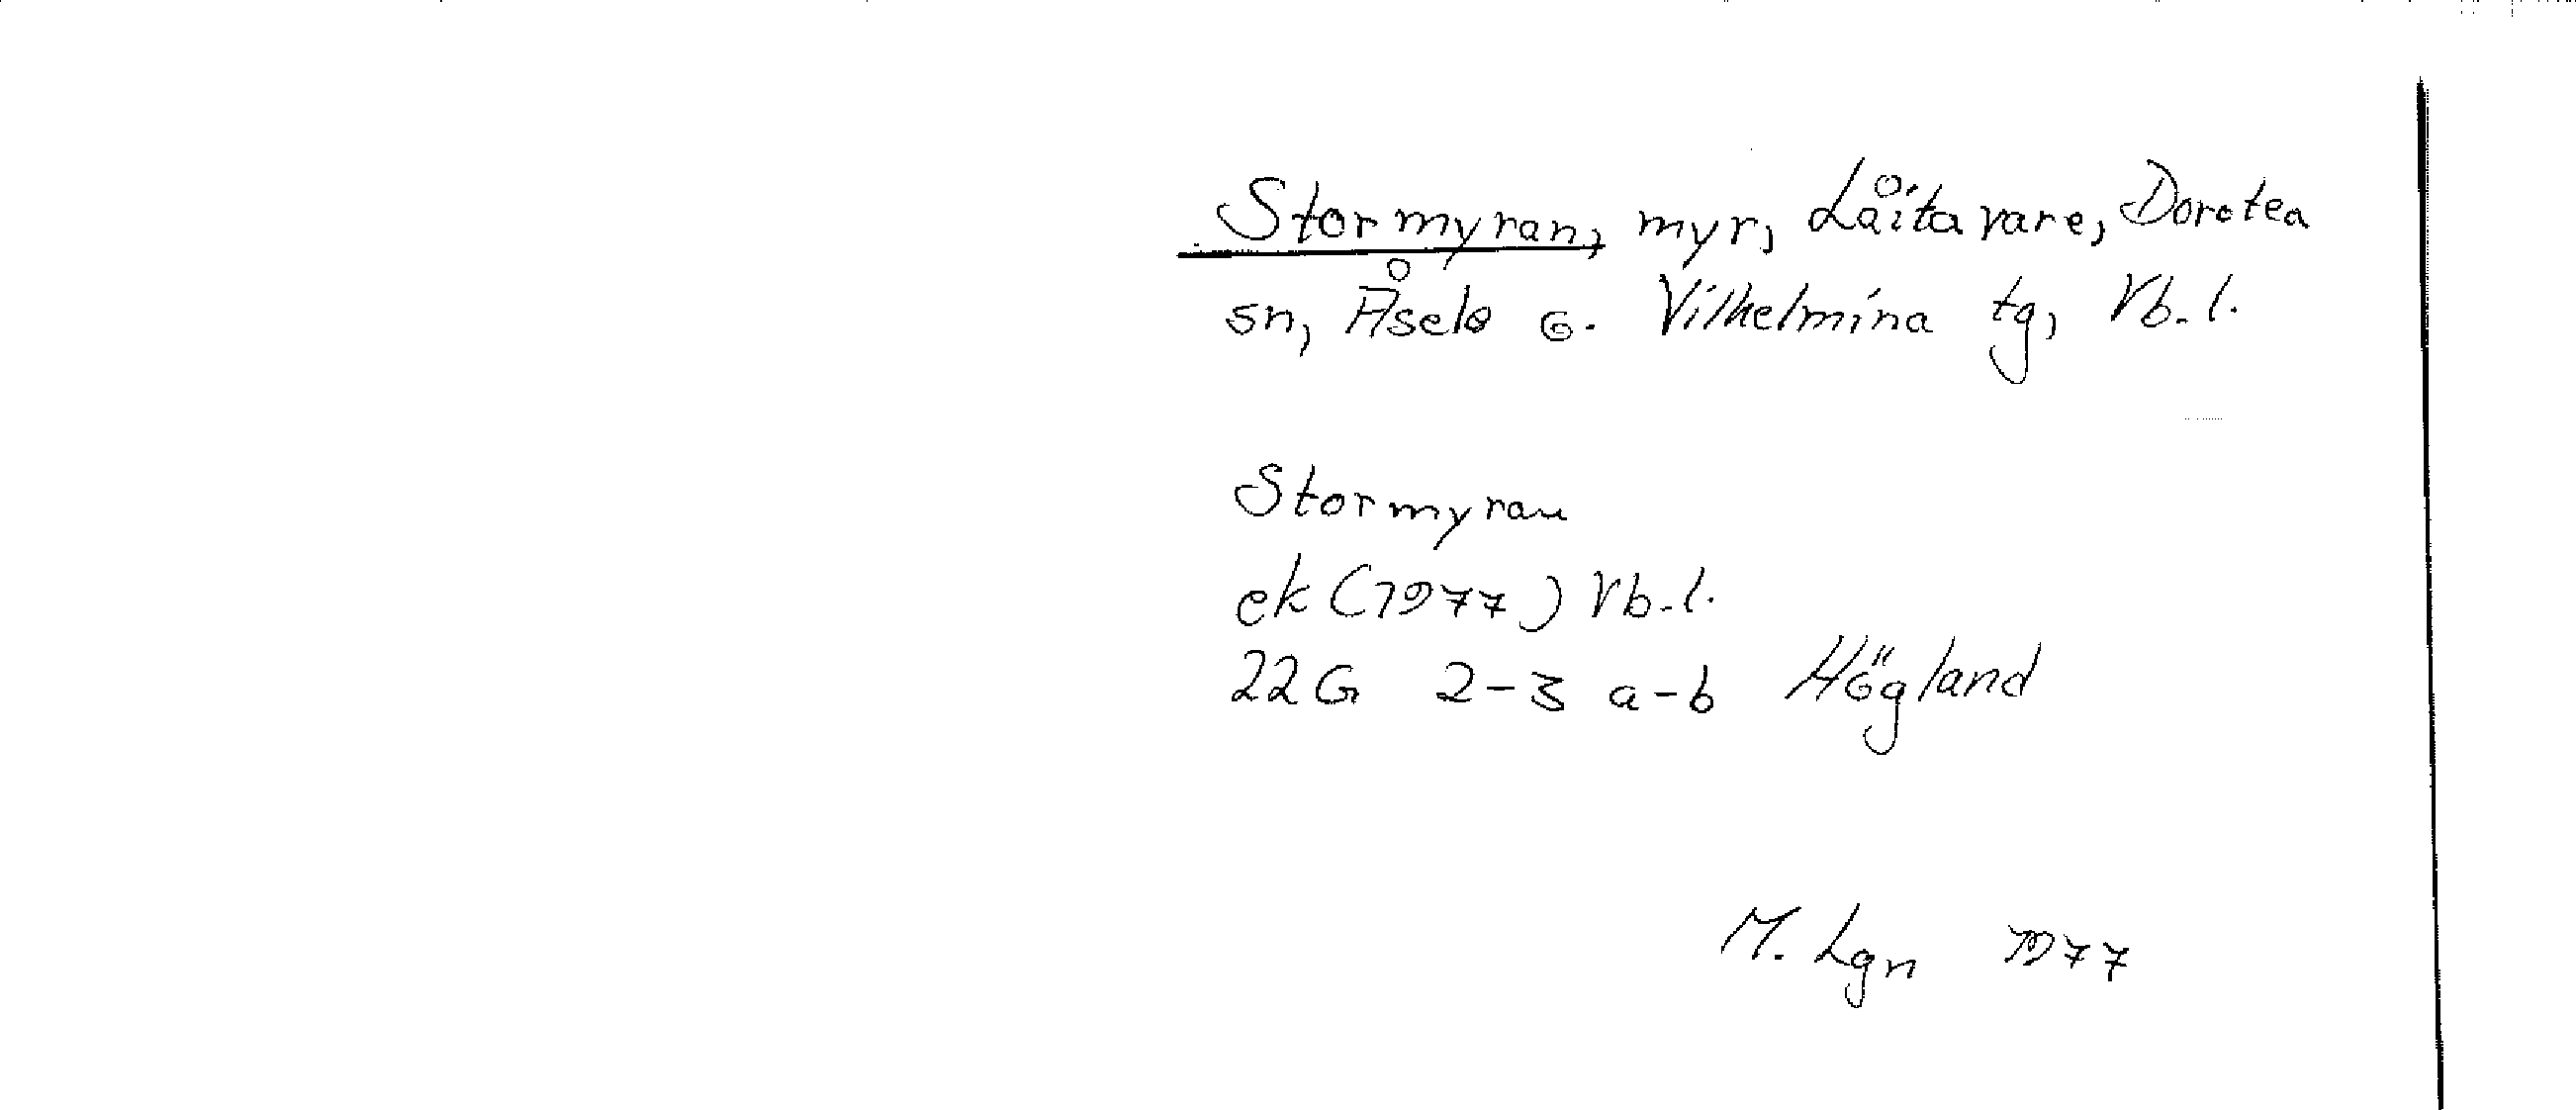 Stormyran, myr, Låitavare, Dorotea
sn, Åsele o. Vilhelmina tg, Vb. l.
Stormyran
ek (1977) Vb. l.
22 G 2-3 a-b Högland
M. Lgn 1977